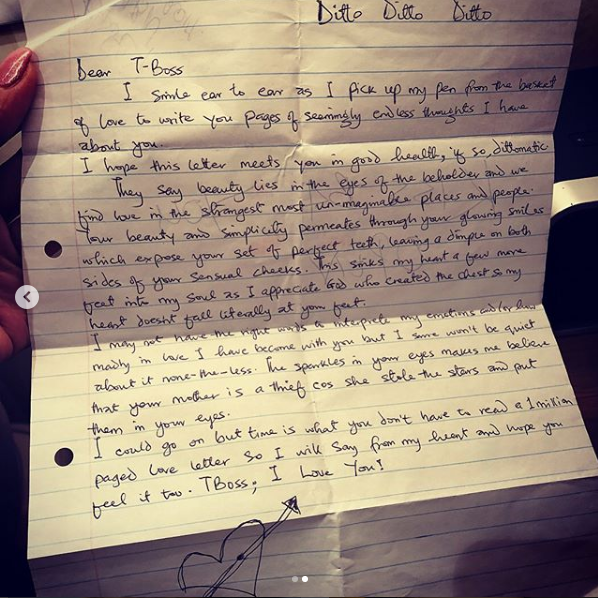 Ditto Ditto Ditto
Dear T-Boss
I smile ear to ear as I pick up my pen from the basket
of love to write you pages of seemingly endless thoughts I have
about you.
I hope this letter meets you in good health, if so, dittomatic
They say beauty lies in the eyes of the beholder and we
find love in the strangest most un-imaginable places and people.
Your beauty and simplicity permeates through your glowing smiles
which expose your set of perfect teeth, leaving a dimple on both
sides of your sensual cheeks. This sinks my heart a few more
feet into my soul as I appreciate God who created the chest so my
heart doesnt fall literally at your feet.
I may not have the right words to interprete my emotions and/or how
madly in love I have become with you but I sure won't be quiet
about it none-the-less. The sparkles in your eyes makes me believe
that your mother is a thief cos she stole the stars and put
them in your eyes.
I could go on but time is what you don't have to read a 1 million
paged love letter so I will say from my heart and hope you
feel it too. TBoss; I Love You!